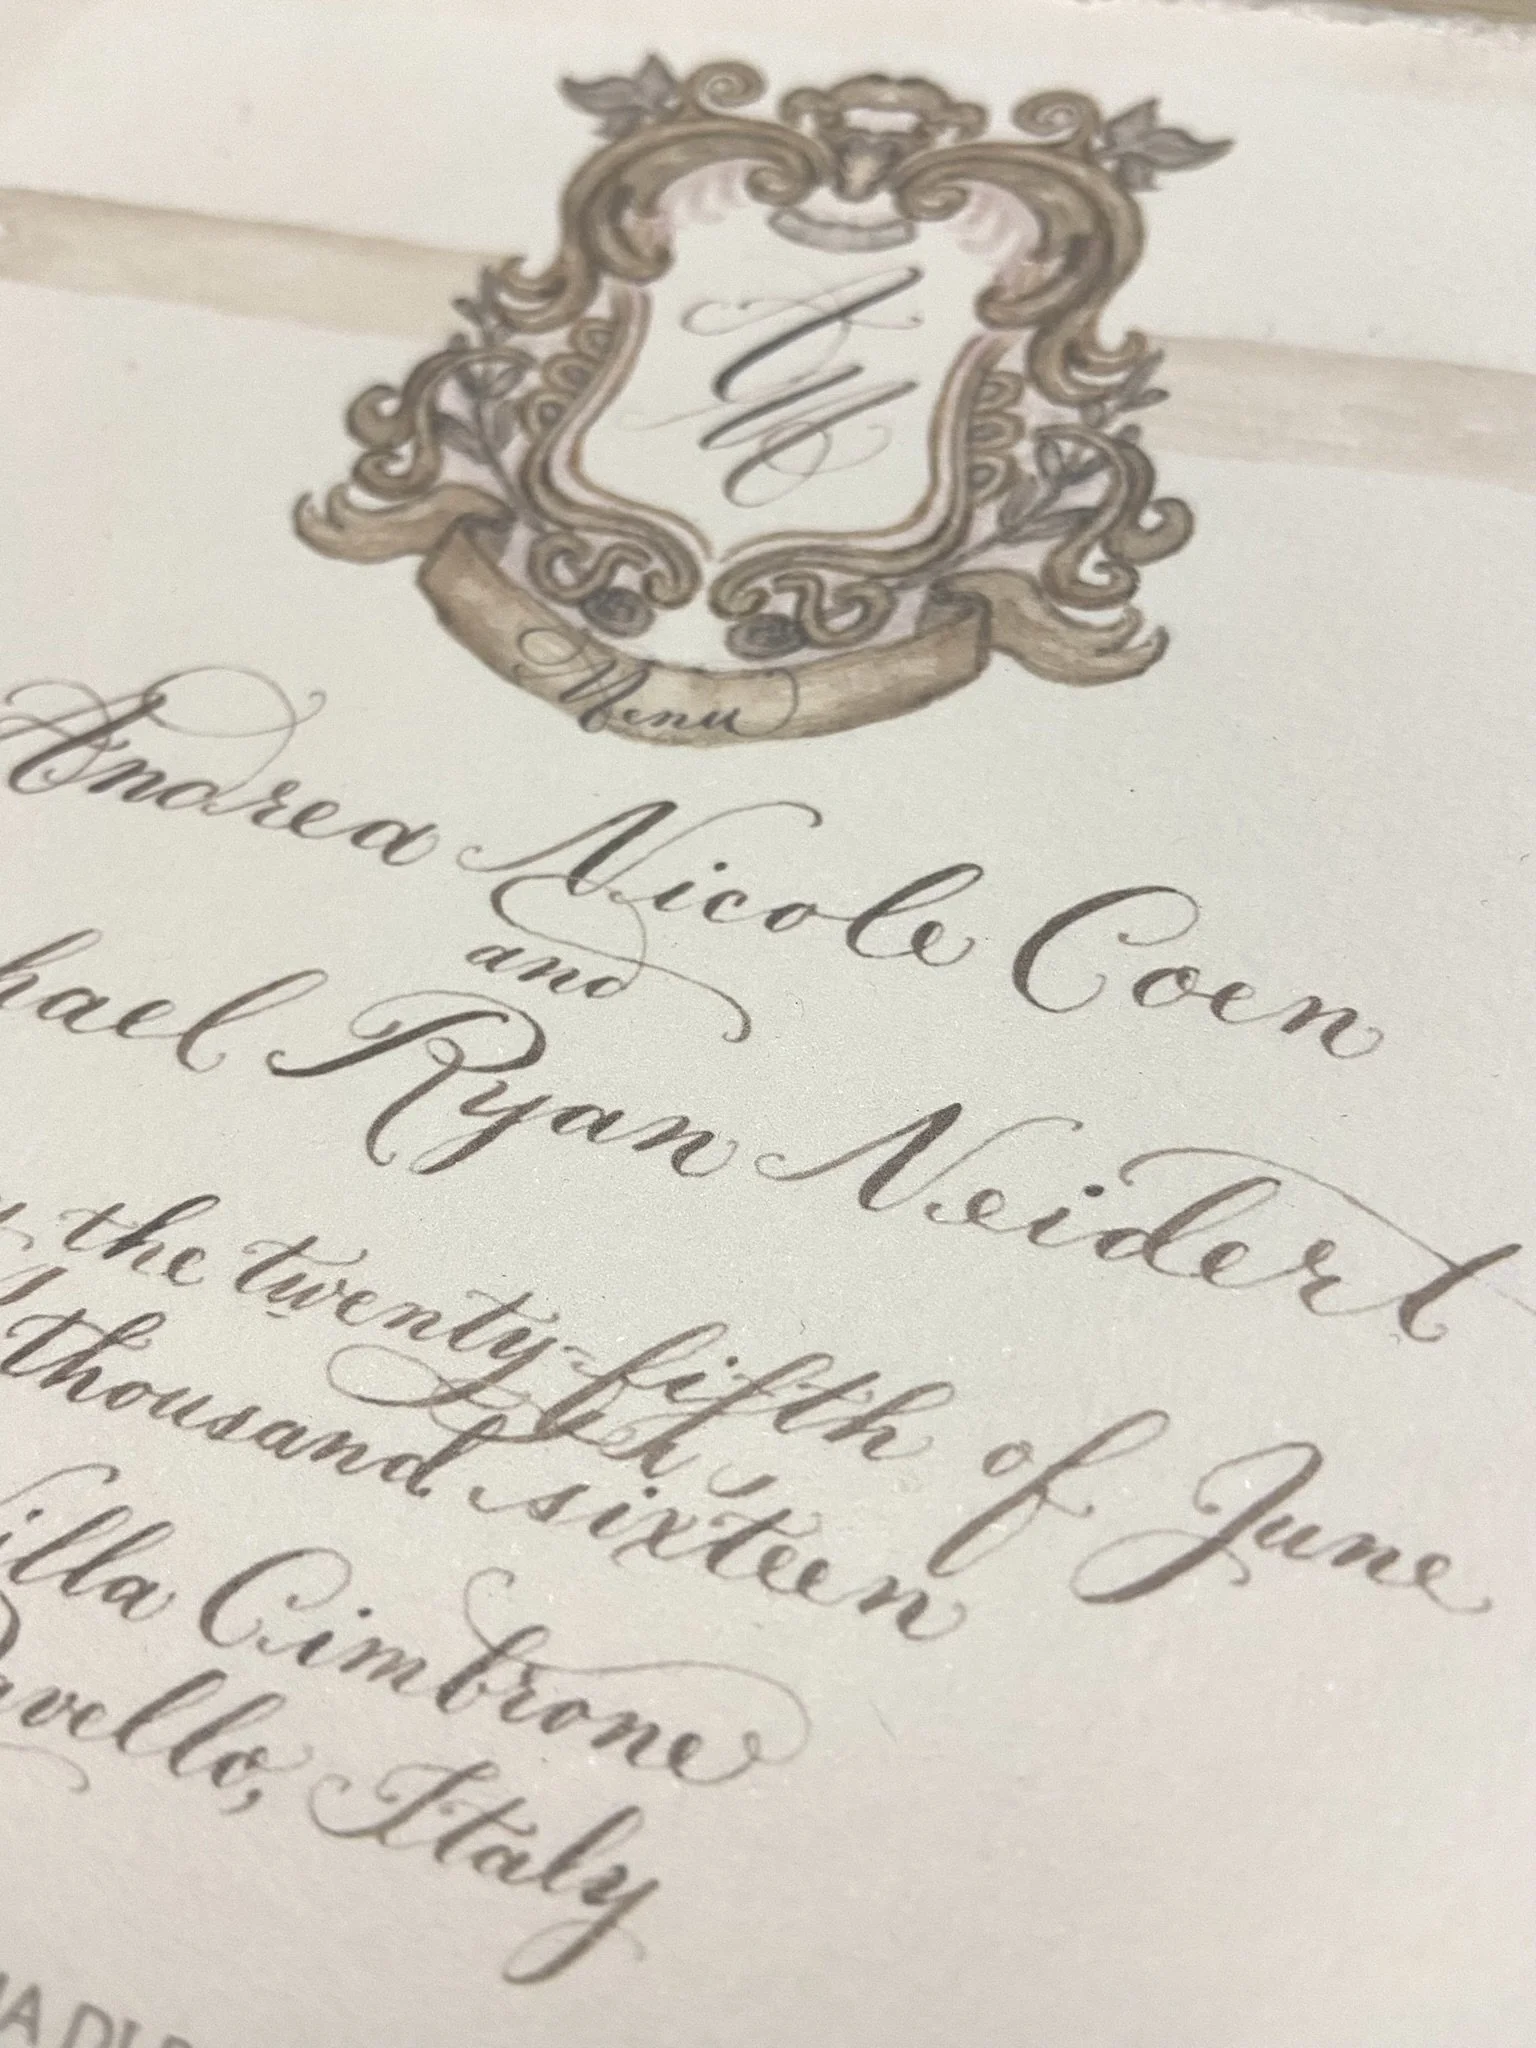 AM
Menu
Andrea Nicole Coen
and
hael Ryan Neidert
the twenty-fifth of June
thousand sixteen
illa Cimbrone
avello, Italy
IA DI